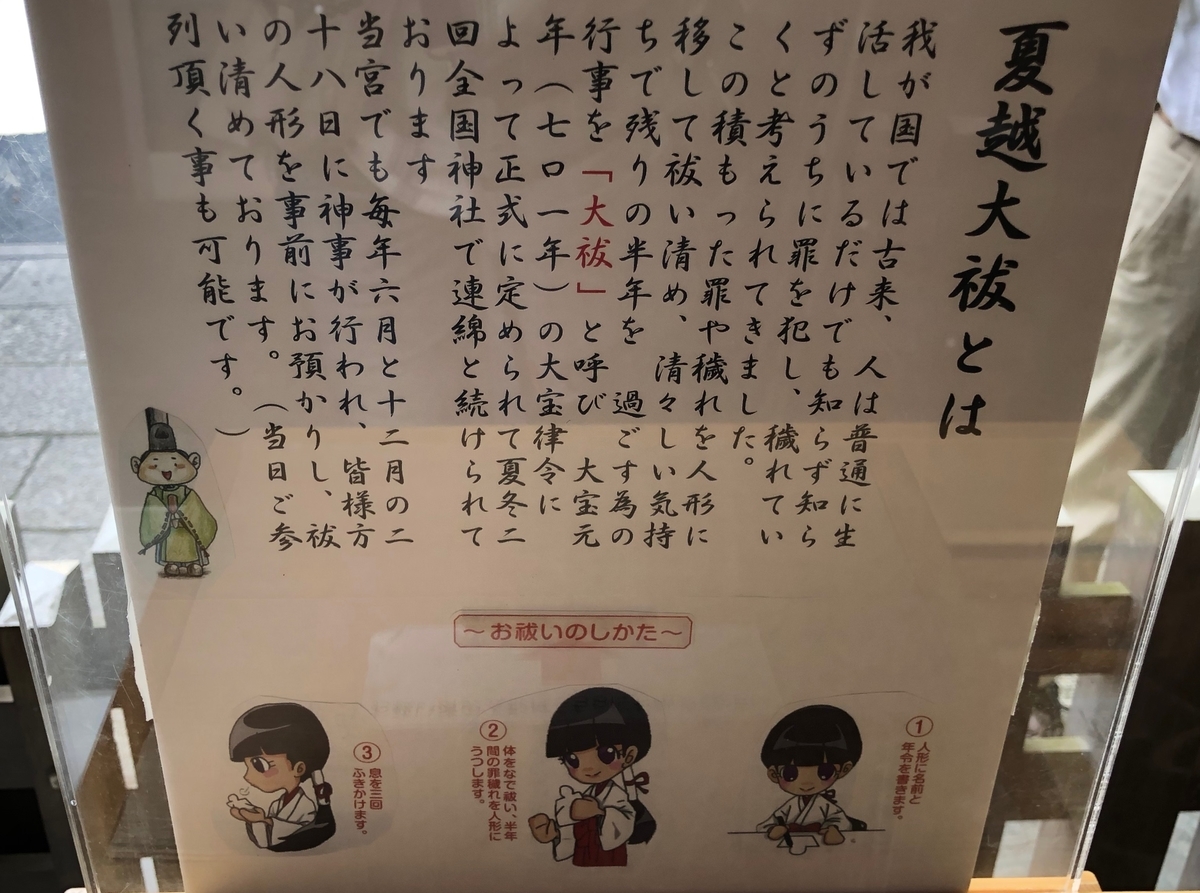 夏越大祓とは
我が国では古来、人は普通に生
活しているだけでも知らず知ら
ずのうちに罪を犯し、穢れてい
くと考えられてきました。
この積もった罪や穢れを人形に
移して祓い清め、清々しい気持
ちで残りの半年を　過ごす為の
行事を「大祓」と呼び　大宝元
年（七ロ一年）の大宝律令に
よって正式に定められて夏冬二
回全国神社で連綿と続けられて
おります
当宮でも毎年六月と十二月の二
十八日に神事が行われ、皆様方
の人形を事前にお預かりし、祓
い清めております。（当日ご参
列頂く事も可能です。）
～お祓いのしかた～
① 人形に名前と
年令を書きます。
② 体をなで祓い、半年
間の罪穢れを人形に
うつします。
③ 息を三回
ふきかけます。